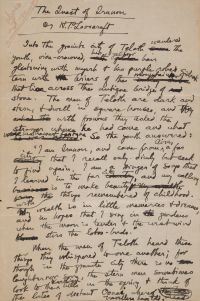 The Quest of Iranon
By H. P. Lovecraft
Into the granite city of Teloth wandered
the youth, vine-crowned, his yellow hair
glistening with myrrh & his purple robe
torn with briers of the
that lies across the antique bridge of
stone. The men of Teloth are dark and
stern, & dwell in square houses, and
with frowns they asked the
stranger whence he had come and what
So the youth answered:
"I am Iranon, and come from Aira, a far
city that I recall only dimly but seek
to find again. I am a singer of songs that
I learned in the far city, and my calling
is to make beauty with
the things remembered of childhood.
My wealth is in little memories & dreams,
and in hopes that I sing in gardens
when the moon is tender & the west wind
stirs the lotos-buds."
When the men of Teloth heard these
things they whispered to one another; for
though in the granite city there is no
laughter the stern men sometimes
look to the hills in the spring & think of
the lutes of distant Oonai whereof
travellers have